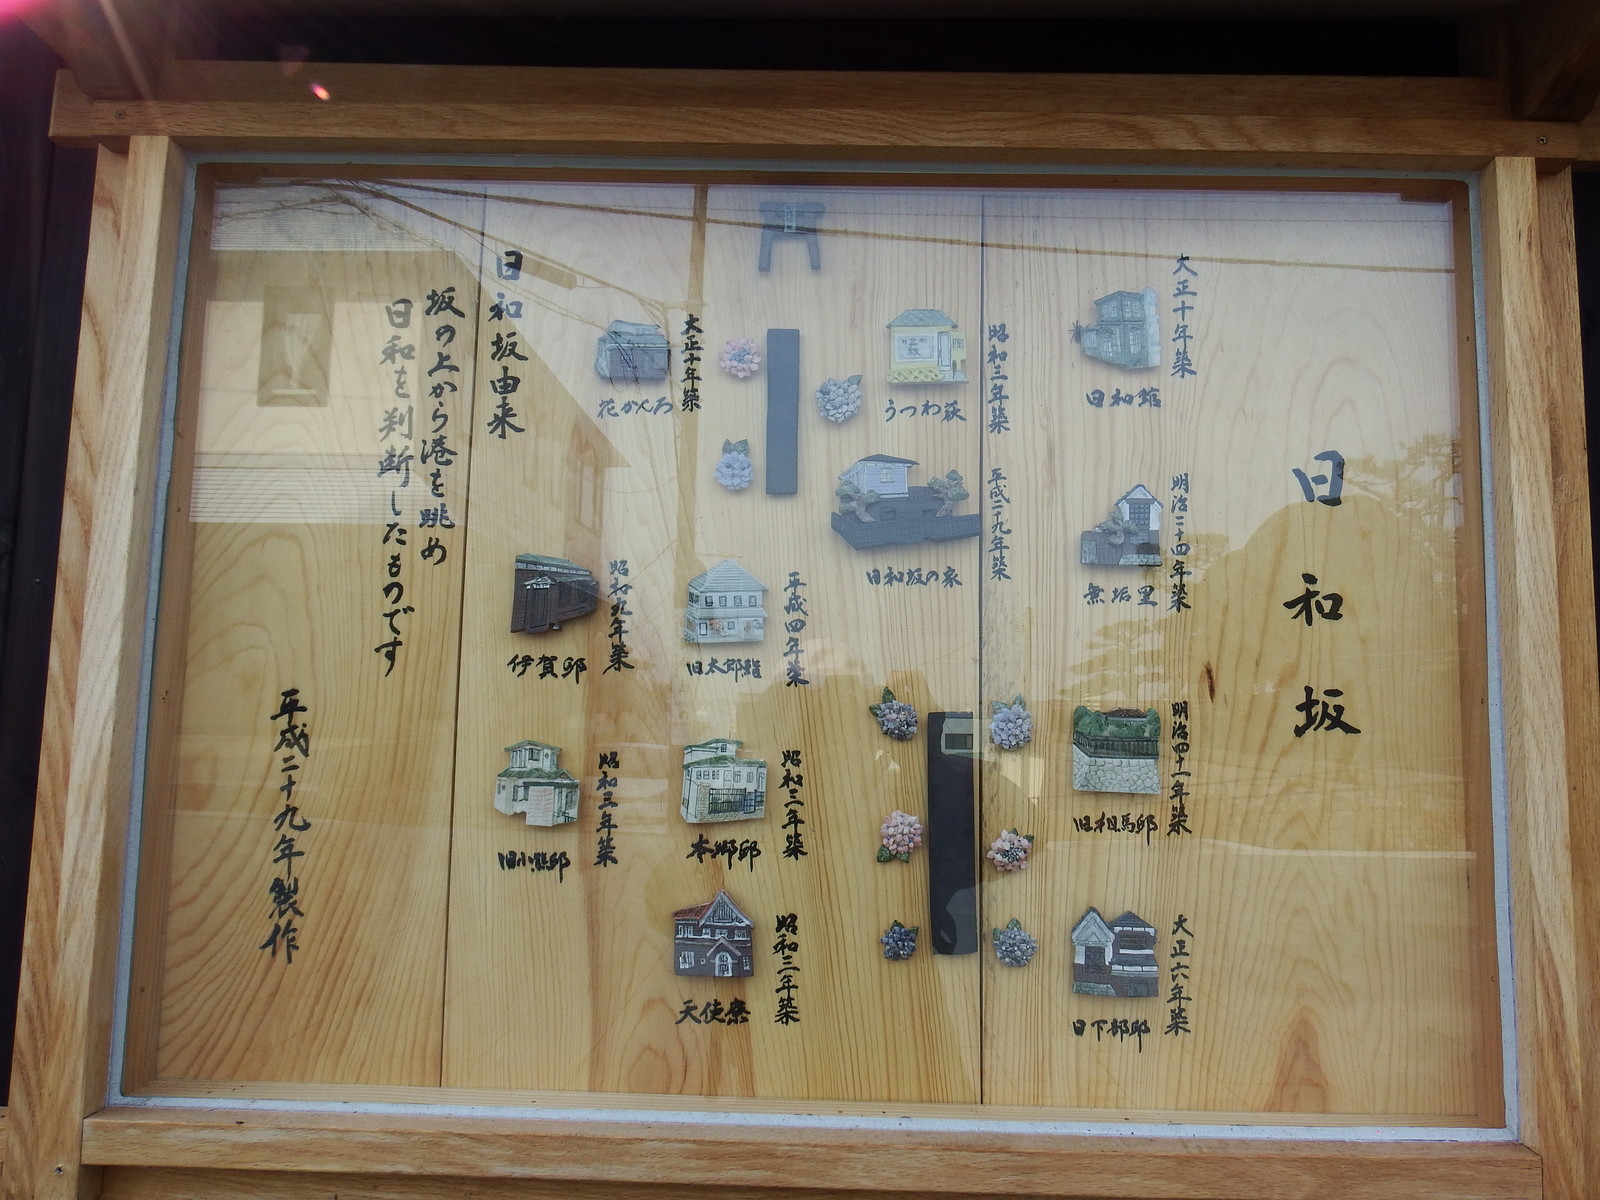 日和坂
大正十年築
日和館
明治二十四年築
無垢里
明治四十一年築
旧相馬邸
大正六年築
日下部邸
昭和三年築
うつわ萩
平成二十九年築
日和坂の家
大正十年築
花かんろ
平成四年築
旧太郎鮨
昭和九年築
伊賀邸
昭和三年築
本郷邸
昭和三年築
旧小熊邸
昭和三年築
天使寮
日和坂由来
坂の上から港を眺め
日和を判断したものです
平成二十九年製作